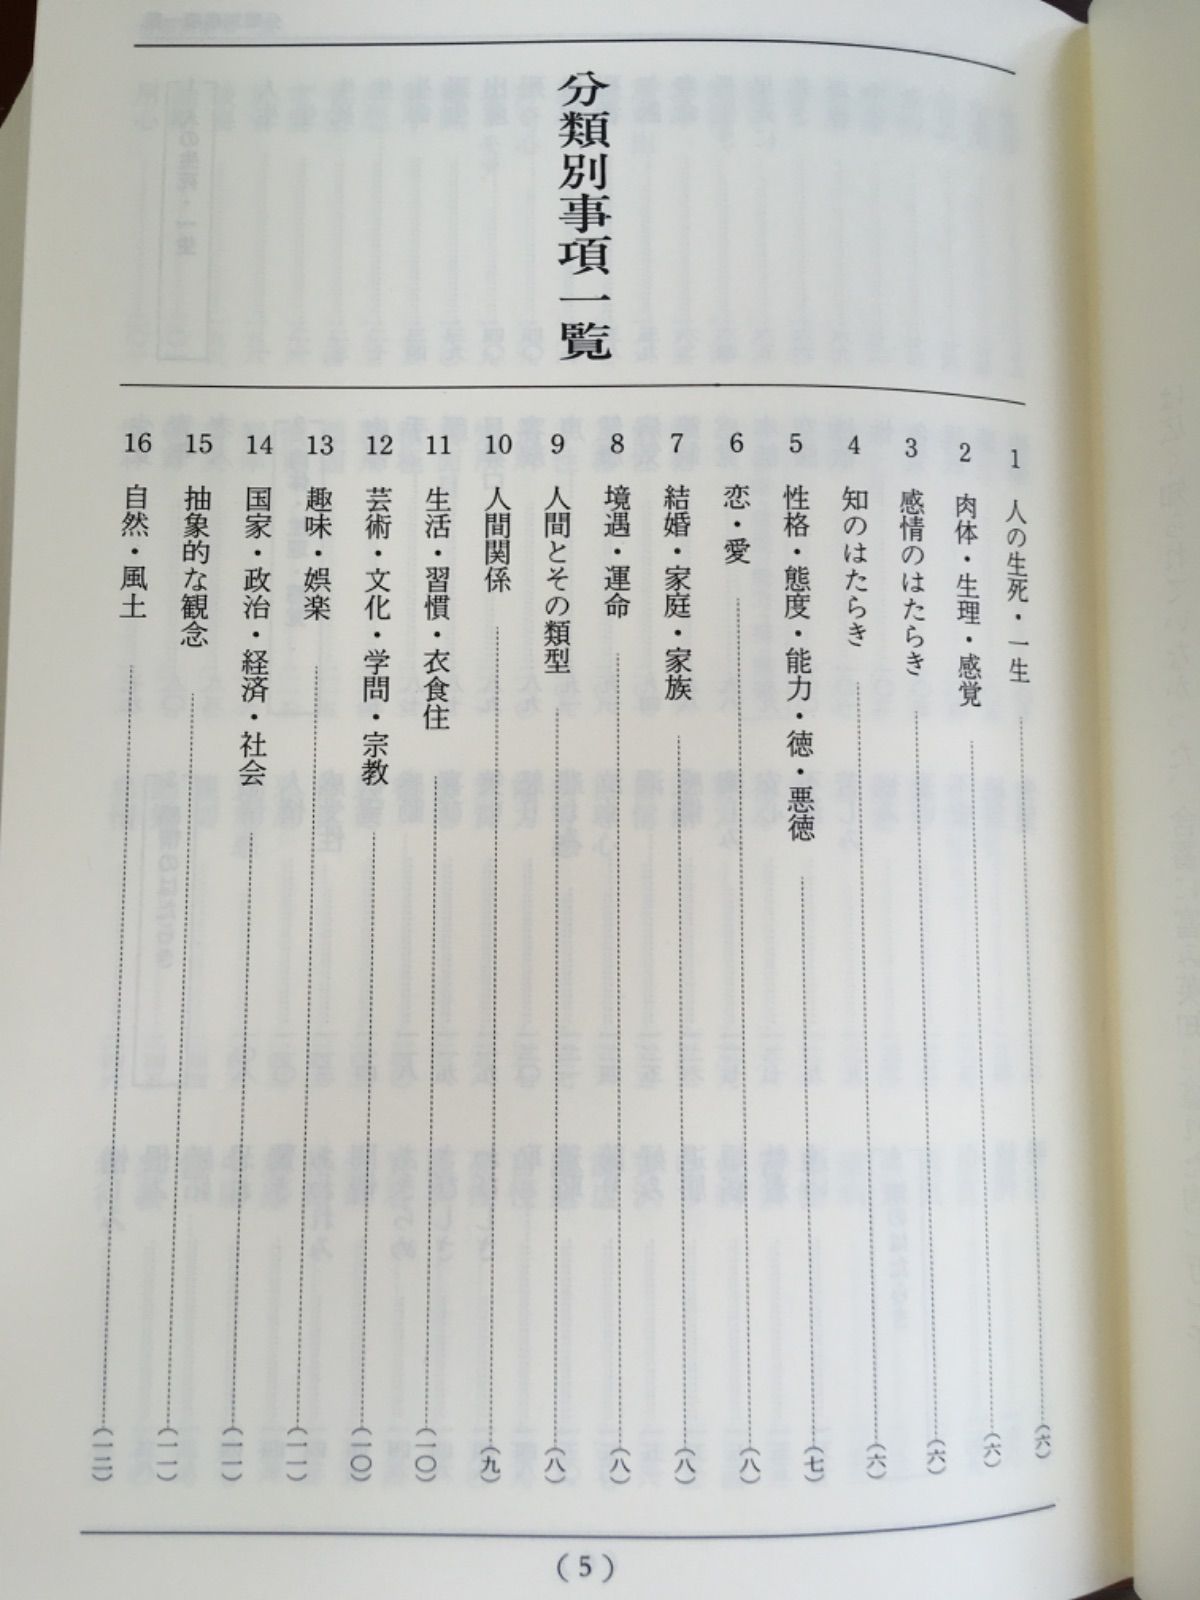 分類別事項一覧
1 人の生死・一生 (六)
2 肉体・生理・感覚 (六)
3 感情のはたらき (六)
4 知のはたらき (六)
5 性格・態度・能力・徳・悪徳 (七)
6 恋・愛 (八)
7 結婚・家庭・家族 (八)
8 境遇・運命 (八)
9 人間とその類型 (八)
10 人間関係 (九)
11 生活・習慣・衣食住 (一〇)
12 芸術・文化・学問・宗教 (一〇)
13 趣味・娯楽 (一一)
14 国家・政治・経済・社会 (一一)
15 抽象的な観念 (一一)
16 自然・風土 (一二)
(5)